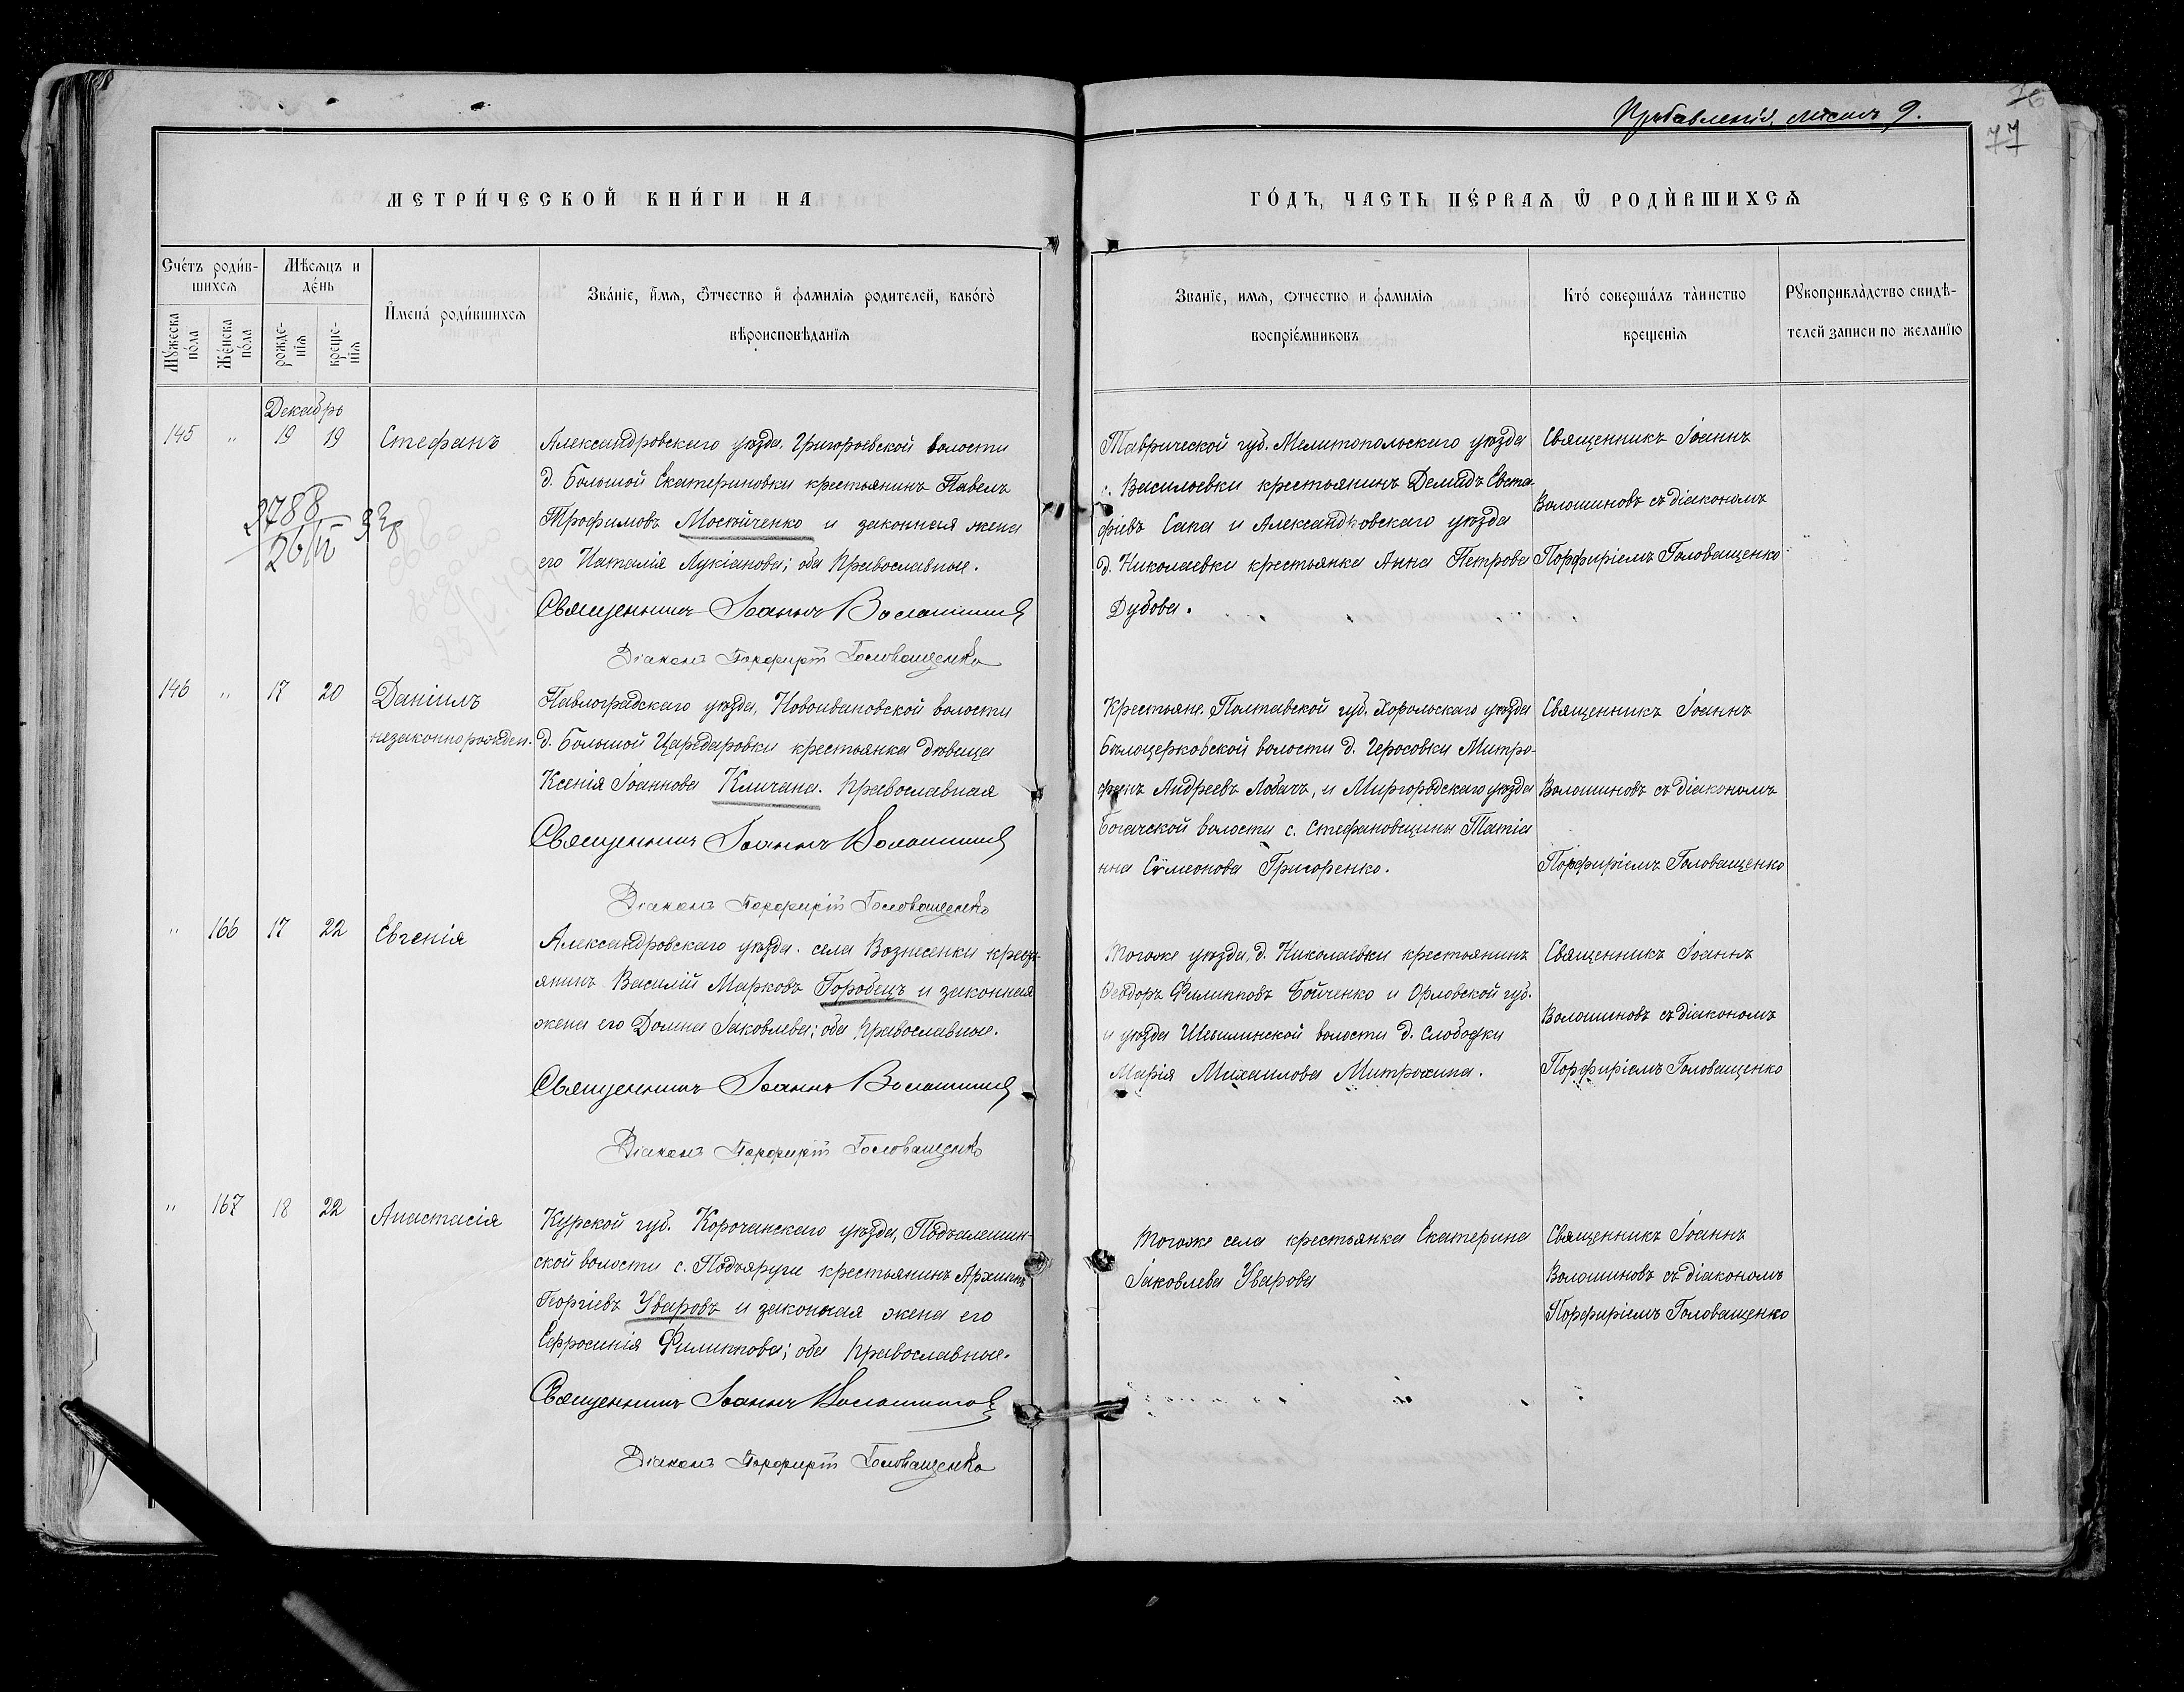 Прибавленія, листъ 9.
77
МЕТРИ́ЧЕСКОЙ КНИ́ГИ НА
ГО́ДЪ, ЧАСТЬ ПЕ́РВАѦ Ѿ РОДИ́ВШИХСѦ
Сче́тъ роди́в-
шихсѧ
Мѣсѧцъ и
де́нь
Мꙋ́жеска
по́ла
Же́нска
по́ла
рожде-
нїѧ
креще-
нїѧ
И҆мена̀ роди́вшихсѧ
Зва́нїе, и҆́мѧ, ѻ҆́тчество и҆ фамилїѧ родителей, како́гѡ
вѣроисповѣ́данїѧ
Званїе, имѧ, ѻтчество и фамилїѧ
воспрїе́мниковъ
Кто̀ соверша́лъ та̀инство
крещенїѧ
Рꙋкоприкла̀дство свидѣ-
телей записи по желанїю
Декабрь
145 " 19 19 Стефанъ
Александровскаго уѣзда, Григорьевской волости
д. Большой Екатериновки крестьянинъ Павелъ
Трофимовъ Мосейченко и законная жена
его Наталія Лукіанова; оба православные.
Священникъ Іоаннъ Волошиновъ
Діаконъ Порфирій Головащенко
2788
26/II 38
Таврической губ. Мелитопольскаго уѣзда
с. Васильевки крестьянинъ Демидъ Евста-
фіевъ Сапа и Александровскаго уѣзда
д. Николаевки крестьянка Анна Петрова
Дубова.
Священникъ Іоаннъ
Волошиновъ съ діакономъ
Порфиріемъ Головащенко
146 " 17 20 Даніилъ
незаконнорожден.
Павлоградскаго уѣзда, Новоивановской волости
д. Большой Царедаровки крестьянка дѣвица
Ксенія Іоаннова Кличана. православная
Священникъ Іоаннъ Волошиновъ
Діаконъ Порфирій Головащенко
Крестьяне. Полтавской губ. Хорольскаго уѣзда
Бѣлоцерковской волости д. Чересовки Митро-
фанъ Андреевъ Лобачъ, и Миргородскаго уѣзда
Богачской волости с. Стефановщины Татіа
нна Сѵмеонова Григоренко.
Священникъ Іоаннъ
Волошиновъ съ діакономъ
Порфиріемъ Головащенко
" 166 17 22 Евгенія
Александровскаго уѣзда. села Вознесенки крест-
янинъ Василій Марковъ Городецъ и законная
жена его Домна Іаковлева; оба православные.
Священникъ Іоаннъ Волошиновъ
Діаконъ Порфирій Головащенко
Тогоже уѣзда, д. Николаевки крестьянинъ
Ѳеодоръ Филипповъ Бойченко и Орловской губ.
и уѣзда волости д. Слободки
Марія Михаилова Митрохина.
Священникъ Іоаннъ
Волошиновъ съ діакономъ
Порфиріемъ Головащенко
" 167 18 22 Анастасія
Курской губ. Корочанскаго уѣзда, Подъалешин-
ской волости с. Подъяруги крестьянинъ Архипъ
Георгіевъ Уваровъ и законная жена его
Ефросинія Филиппова; оба православные.
Священникъ Іоаннъ Волошиновъ
Діаконъ Порфирій Головащенко
Тогоже села крестьянка Екатерина
Іаковлева Уварова
Священникъ Іоаннъ
Волошиновъ съ діакономъ
Порфиріемъ Головащенко